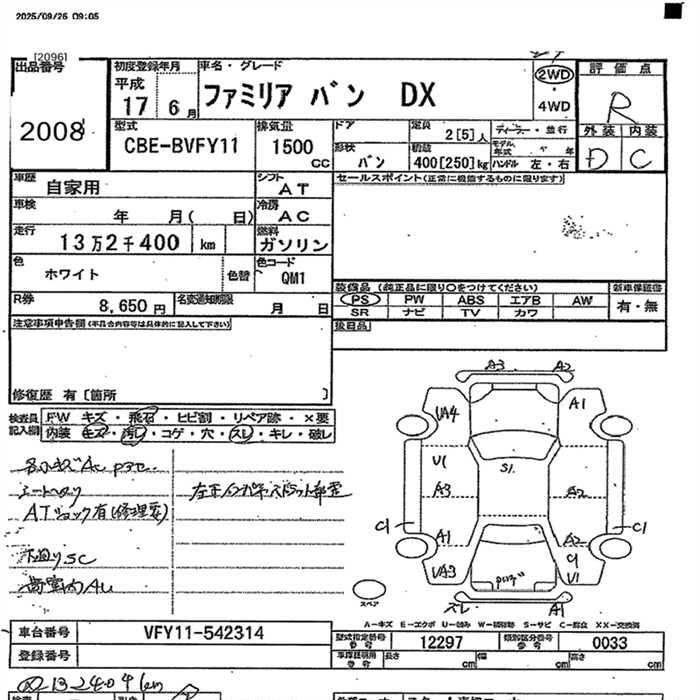 2025/09/26 09:05
[2096]
出品番号
2008
初度登録年月
平成
17 6月
車名・グレード
ファミリア バン DX
2WD
・
4WD
評価点
R
外装 内装
D C
型式
CBE-BVFY11
排気量
1500
CC
ドア
形状
バン
定員
2[5]人
積載
400[250]kg
ディーラー・並行
モデル年式 年
ハンドル 左・右
車歴
自家用
シフト
AT
車検
年 月( 日)
冷房
AC
走行
13万2千400 km
燃料
ガソリン
色
ホワイト
色替
色コード
QM1
R券
8,650円
名変通知期限
月 日
セールスポイント(正常に機能するものに限ります)
装備品 (純正品に限り○をつけてください)
PS PW ABS エアB AW
SR ナビ TV カワ
新車保証書
有・無
後日品
注意事項申告欄(不具合内容等は具体的に記入して下さい)
修復歴 有〔箇所 〕
検査員記入欄
FW キズ・飛石・ヒビ割・リペア跡・×要
内装 キズ・汚レ・コゲ・穴・スレ・キレ・破レ
シートヘタリ
ATショック有(修理要)
下廻りSC
荷室内AU
A3 A2
UA4 A1
U1 S1
A3 A2
C1 C1
A1 A2
UA3 C1
U1
スレ A1
スペア
A-キズ E-エクボ U-凹み S-サビ C-腐食 XX-交換済
車台番号
VFY11-542314
登録番号
型式指定番号
12297
類別区分番号
0033
長さ cm
幅 cm
高さ cm